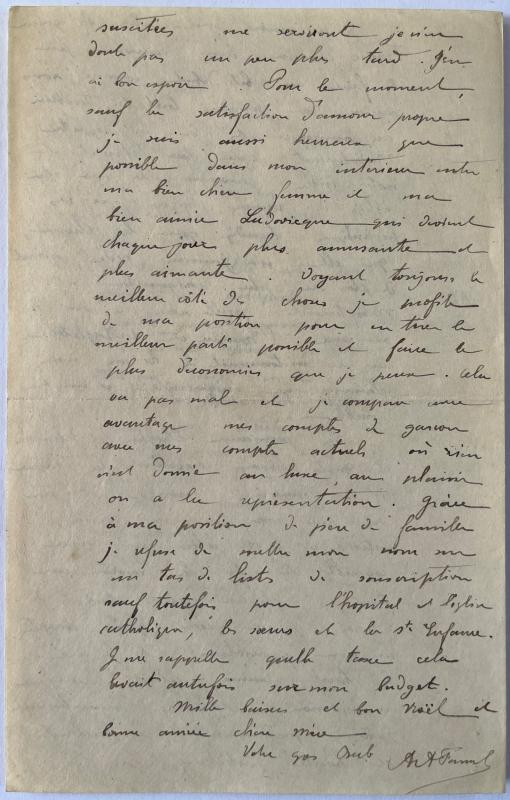 suscitées me serviront je n'en
doute pas un peu plus tard. J'en
ai bon espoir Pour le moment,
sauf la satisfaction d'amour propre
je suis aussi heureux que
possible dans mon intérieur entre
ma bien chère femme et ma
bien aimée Ludovicque qui devient
chaque jour plus amusante et
plus aimante. Voyant toujours le
meilleur côté des choses je profite
de ma position pour en tirer le
meilleur parti possible et faire le
plus d'économies que je peux. Cela
va pas mal et je compare avec
avantage mes comptes de garçon
avec mes comptes actuels où rien
n'est donné au luxe, au plaisir
ou a la représentation. Grâce
à ma position de père de famille
je refuse de mettre mon nom sur
un tas de listes de souscription
sauf toutefois pour l'hopital et l'église
catholique, les sœurs et la Ste Enfance.
Je me rappelle quelle taxe cela
levait autrefois sur mon budget.
Mille baisers et bon Noël et
bonne année chère mère
Votre gros